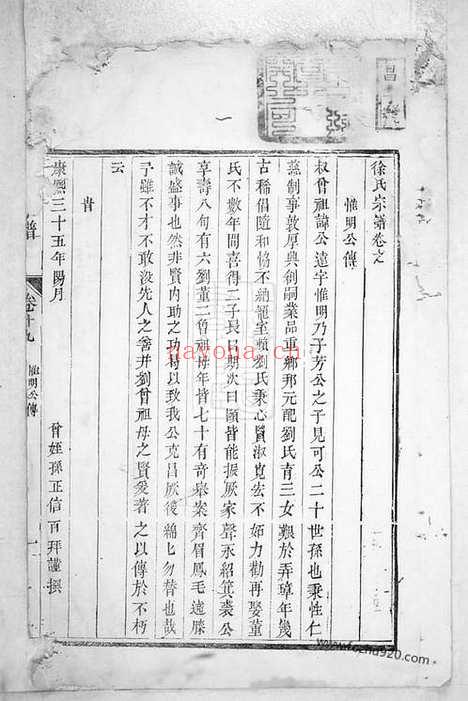 徐氏宗譜卷之
惟明公傳
叔曾祖諱公遠字惟明乃于芳公之子見可公二十世孫也秉性仁
慈制事敦厚典創嗣業品重鄉邦元配劉氏育三女艱於弄璋年幾
古稀倡隨和恊不納寵室賴劉氏秉心賢淑寬宏不妬力勸再娶董
氏不數年間喜得二子長曰期次曰頤皆能振厥家聲永紹箕裘公
享壽八旬有六劉董二曾祖母年皆七十有奇舉案齊眉鳳毛遠勝
誠盛事也然非賢內助之功曷以致我公克昌厥後綿匕勿替也哉
予雖不才不敢没先人之善并劉曾祖母之賢爰著之以傳於不朽
云
旹
康熙三十五年陽月
曾姪孫正信百拜謹撰
譜
卷十九
惟明公傳
一
nayona.cn
www.fozhu920.com